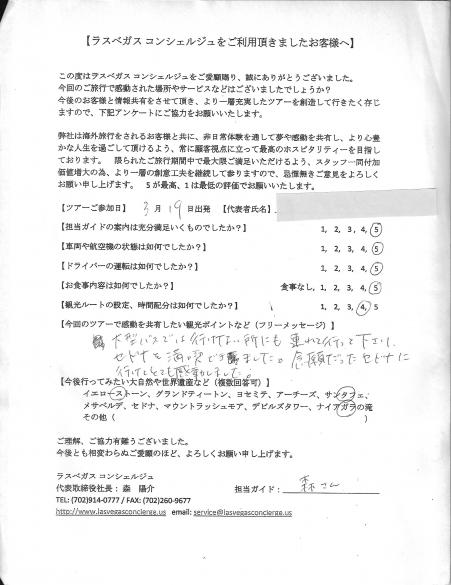 【ラスベガス コンシェルジュをご利用頂きましたお客様へ】
この度はラスベガス コンシェルジュをご愛顧賜り、誠にありがとうございました。
今回のご旅行で感動された場所やサービスなどはございましたでしょうか?
今後のお客様と情報共有をさせて頂き、より一層充実したツアーを創造して行きたく存じ
ますので、下記アンケートにご協力をお願いいたします。
弊社は海外旅行をされるお客様と共に、非日常体験を通して夢や感動を共有し、より心豊
かな人生を過ごして頂けるよう、常に顧客視点に立って最高のホスピタリティーを目指し
ております。 限られたご旅行期間中で最大限ご満足いただけるよう、スタッフ一同付加
価値増大の為、より一層の創意工夫を継続して参りますので、忌憚無きご意見をよろしく
お願い申し上げます。 5が最高、1は最低の評価でお願いいたします。
【ツアーご参加日】 3月 19日出発 【代表者氏名】
【担当ガイドの案内は充分満足いくものでしたか?】 1, 2, 3, 4, 5
【車両や航空機の状態は如何でしたか?】 1, 2, 3, 4, 5
【ドライバーの運転は如何でしたか?】 1, 2, 3, 4, 5
【お食事内容は如何でしたか?】 食事なし, 1, 2, 3, 4, 5
【観光ルートの設定、時間配分は如何でしたか?】 1, 2, 3, 4, 5
【今回のツアーで感動を共有したい観光ポイントなど(フリーメッセージ)】
大型バスでは行けない所にも 連れて行って下さり、
セドナを満喫できました。念願だったセドナに
行けてとても感動しました。
【今後行ってみたい大自然や世界遺産など(複数回答可)】
イエローストーン、グランドティートン、ヨセミテ、アーチーズ、サンタフェ、
メサベルデ、セドナ、マウントラッシュモア、デビルズタワー、ナイアガラの滝
その他( )
ご理解、ご協力有難うございました。
今後とも相変わらぬご愛顧のほど、よろしくお願い申し上げます。
ラスベガス コンシェルジュ
代表取締役社長: 森 陽介 担当ガイド: 森さん
TEL: (702)914-0777 / FAX: (702)260-9677
http://www.lasvegasconcierge.us email: service@lasvegasconcierge.us